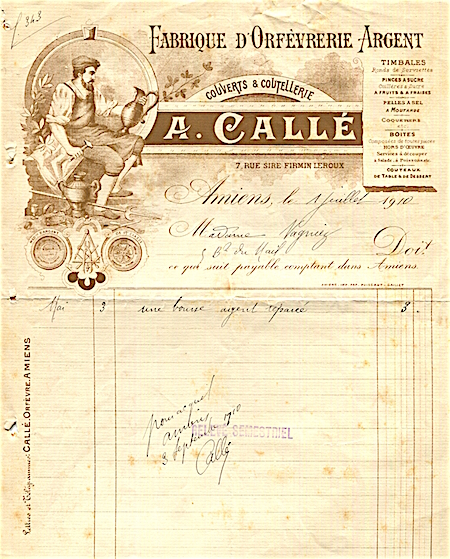 / 343
FABRIQUE D'ORFÉVRERIE ARGENT
COUVERTS & COUTELLERIE
A. CALLÉ
7, RUE SIRE FIRMIN LEROUX
TIMBALES
Ronds de Serviettes
PINCES A SUCRE
Cuillères à Sucre
A FRUITS & A FRAISES
PELLES A SEL
A MOUTARDE
COQUETIERS
BOITES
HORS D'ŒUVRE
Services à découper
à Salade, à Poisson, etc.
COUTEAUX
DE TABLE & DE DESSERT
Amiens, le 1 Juillet 1910
Madame Vagniez
5 Bd du Mail Doit
ce qui suit payable comptant dans Amiens.
Mai 3 une bourse argent réparée 3 .
pour acquit
Amiens
8 Septembre 1910
Callé
RELEVÉ SEMESTRIEL
Lettres et Télégrammes: CALLÉ, ORFÈVRE, AMIENS